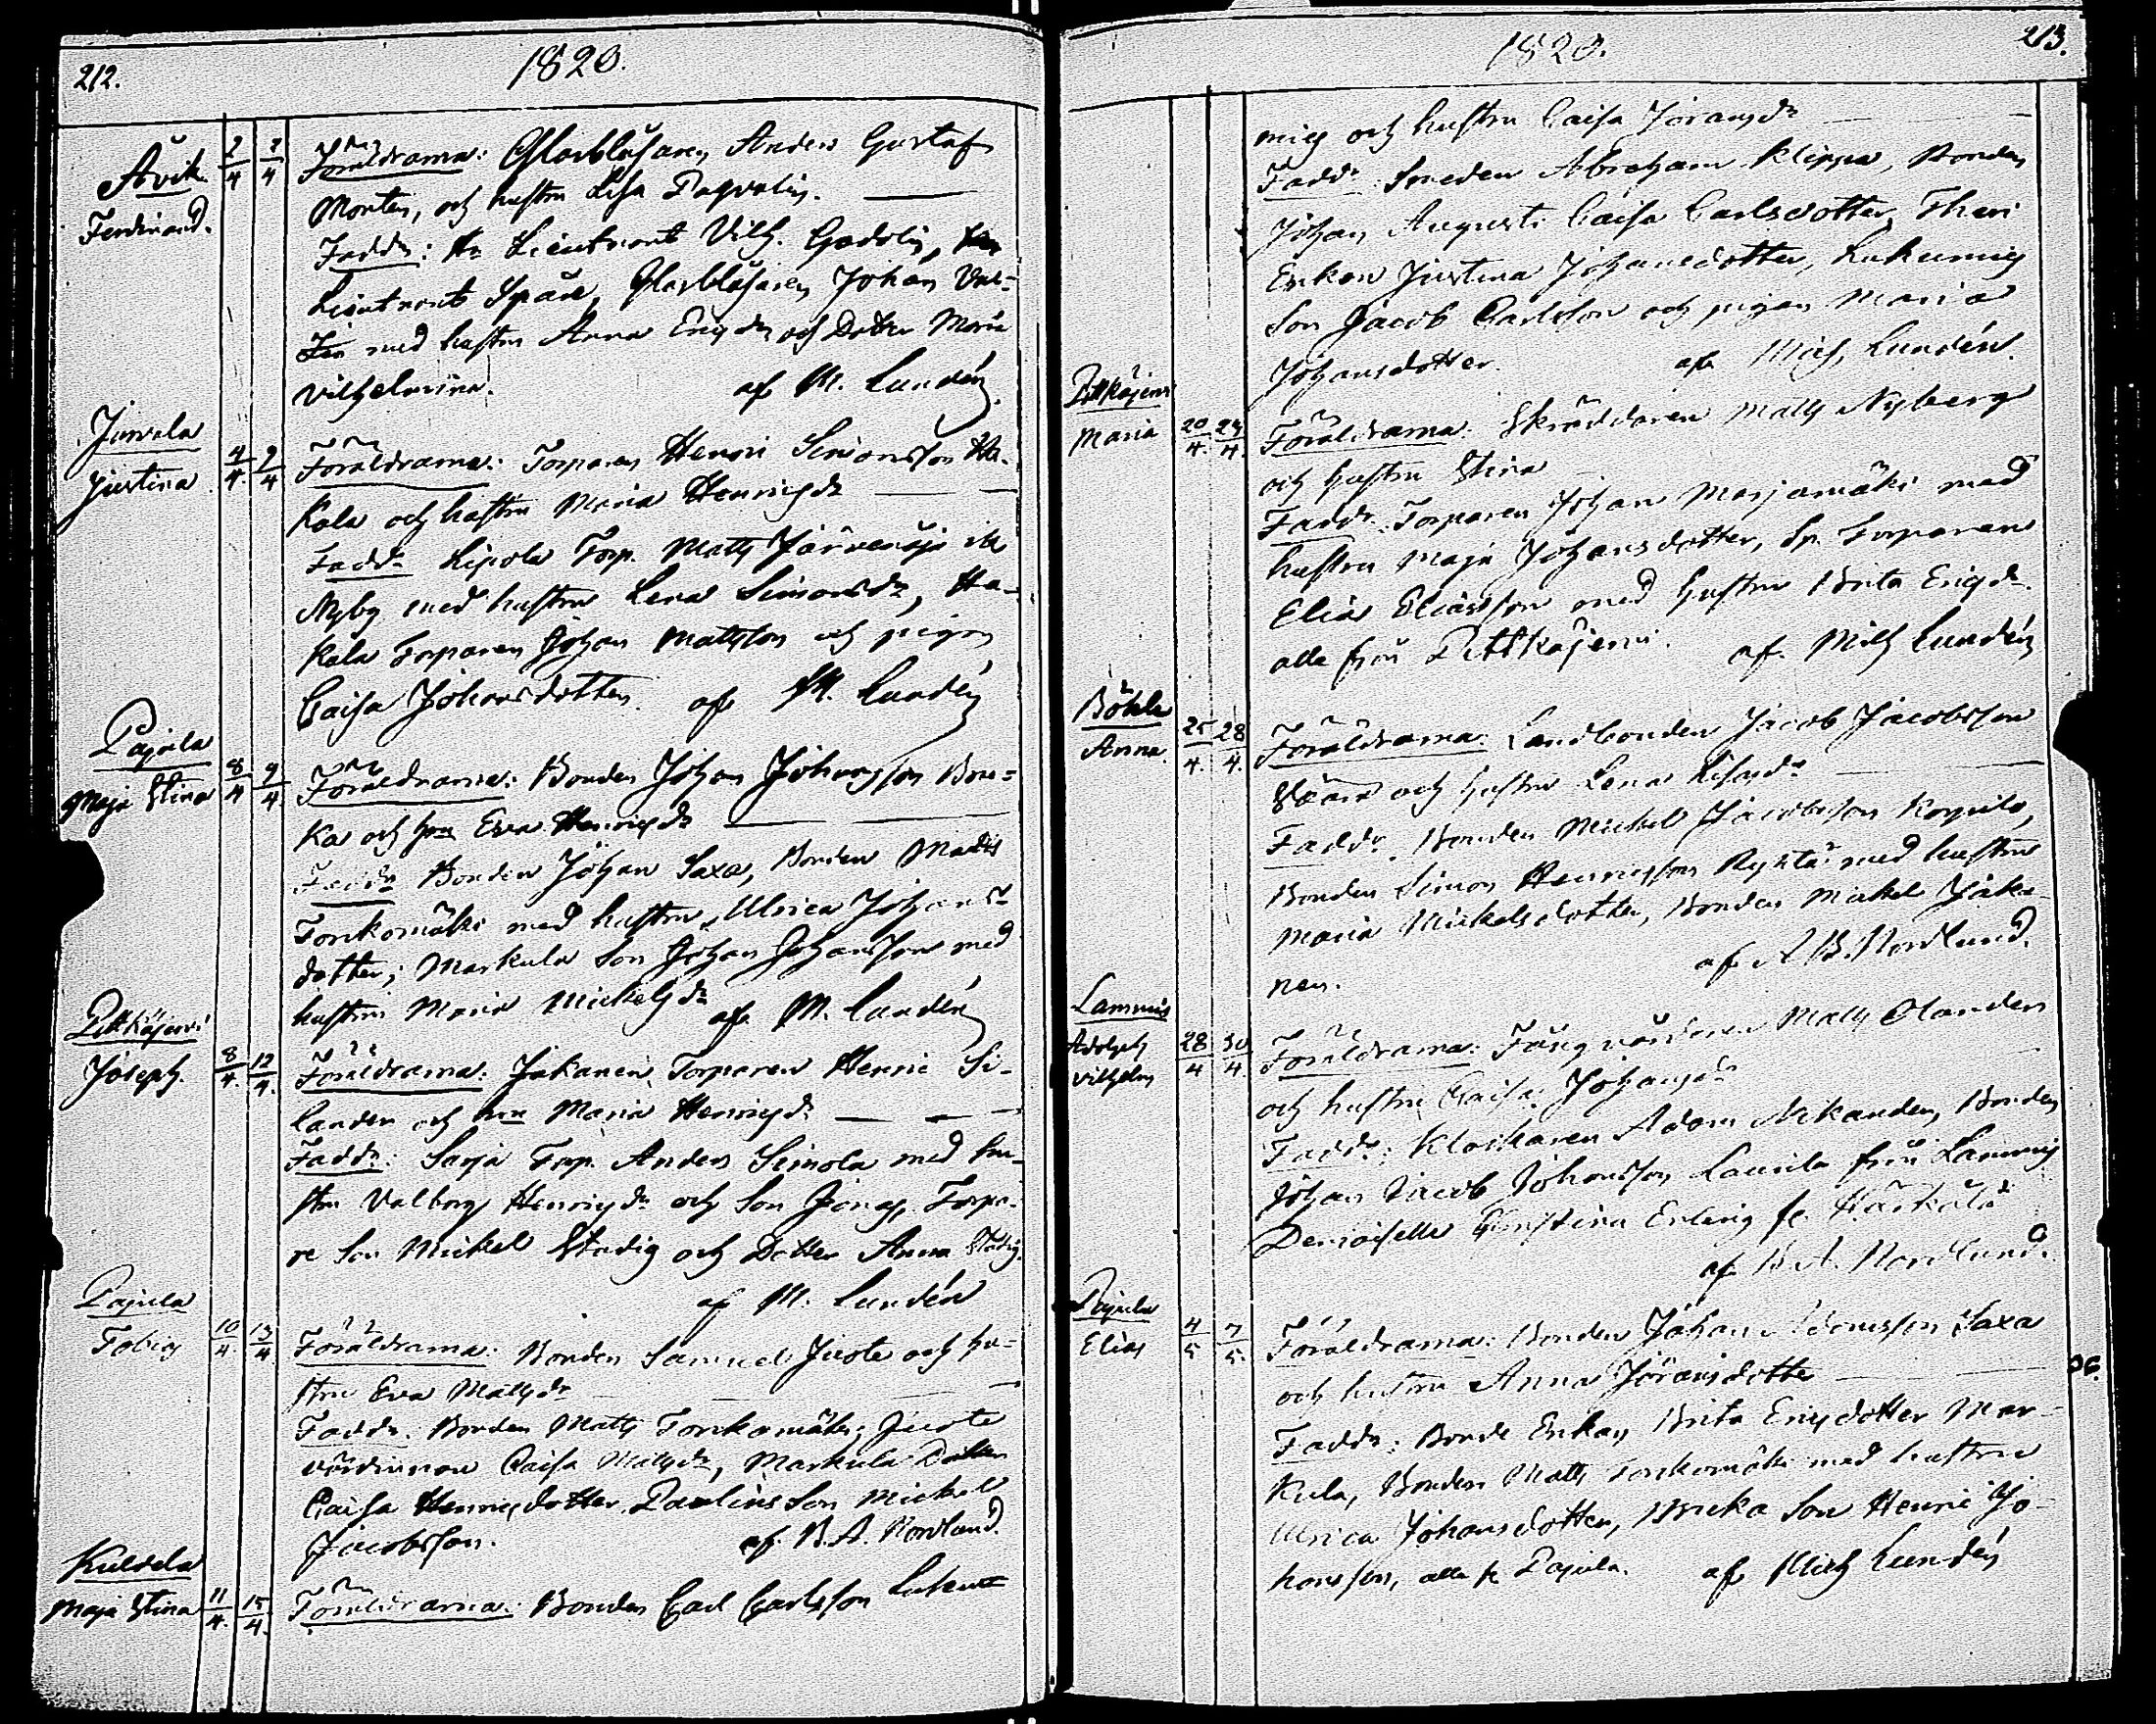 212.
1820.
Åvik
Ferdinand.
2/4 2/4
Föräldrarna: Glasblåsaren Anders Gustaf
Montin, och hustru Lisa Pagvalin.
Faddr: Hr Lieutnant Vilh. Gadolin,
Lieutnant Spåre, Glasblåsaren Johan
med hustru Anna Ericsdr och Dotter Maria
Vilhelmina. af M. Lundén
Juvela
Justina
4/4 9/4
Föräldrarna: Torparen Henric Simonsson Ha-
kala och hustru Maria Henricsdr
Faddr Lipola Torp. Matts
Nyby med hustru Lena Simonsdr, Ha-
kala Torparen Johan Mattsson och pigan
Caisa Johansdotter. af M. Lundén
Pajula
Maja Stina
8/4 9/4
Föräldrarna: Bonden Johan Johansson Bru-
ka och hru Eva Henricsdr
Faddr Bonden Johan Saxa, Bonden Matts
Torkomäki med hustru Ulrica Johans-
dotter; Markula Son Johan Johansson med
hustru Maria Mickelsdr af M. Lundén
Pitkäjervi
Joseph.
8/4 12/4
Föräldrarna: Jakanen Torparen Henric Si-
lander och hru Maria Henricsdr
Faddr: Sarja Torp. Anders Simola med hu-
stru Valborg Henricsdr och Son Jonas, Torpa-
re Son Mickel Stadig och Dotter Anna Stadig.
af M. Lundén
Pajula
Tobias
10/4 13/4
Föräldrarna: Bonden Samuel Juote och hu-
stru Eva Mattsdr
Faddr. Bonden Matts Torkomäki; Juote
värdinnan Caisa Mattsdr, Markula Dotter
Caisa Henricsdotter, Paulins Son Mickel
Jacobsson. af. B. A. Nordlund.
Kuldela
Maja Stina
11/4 15/4
Föräldrarna: Bonden Carl Carlsson
213.
1820.
och hustru Caisa Göransdr
Faddr Smeden Abraham Klippa, Bonden
Johan August: Caisa Carlsdotter,
Enkan Justina Johansdotter,
Son Jacob Carlsson och pigan Maria
Johansdotter. af Mich. Lundén.
Pitkäjervi
Maria
20/4 24/4
Föräldrarna: Skräddaren Matts Nyberg
och hustru Stina
Faddr. Torparen Johan Marjamäki med
hustru Maja Johansdotter, Sp. Torparen
Elias Eliasson med hustru Brita Ericsdr.
alla från Pittkäjervi. af. Mich Lundén
Böhle
Anna.
25/4 28/4
Föräldrarna: Landbonden Jacob Jacobsson
och hustru Lena
Faddr. Bonden Mickel Jacobsson
Bonden Simon Henricsson med hustru
Maria Mickelsdotter, Bonden Mickel Jaka-
nen. af A B. Nordlund.
Lammis
Adolph
Vilhelm
28/4 30/4
Föräldrarna: Matts Olander
och hustru Caisa Johansdr
Faddr: Klockaren Adam Nikander, Bonden
Johan Jacob Johansson Laurila från Lammis
Demoiselle Christina fr. Härkälä
af B. A. Nordlund.
Pajula
Elias
4/5 7/5
Föräldrarna: Bonden Johan Adamsson Saxa
och hustru Anna Göransdotter
Faddr: Bonde Enkan Brita Ericsdotter Mar-
kula, Bonden Matts Torkomäki med hustru
Ulrica Johansdotter, Bruka Son Henric Jo-
hansson, alla fr Pajula. af Mich Lundén